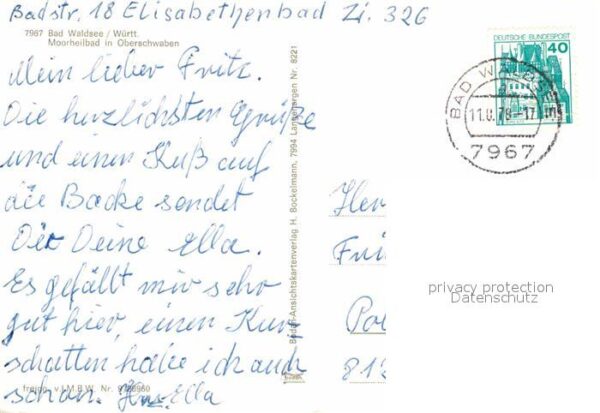 Badstr. 18 Elisabethenbad Zi. 326
7967 Bad Waldsee / Württ.
Moorheilbad in Oberschwaben
Mein lieber Fritz.
Die herzlichsten Grüße
und einen Kuß auf
die Backe sendet
Dir Deine Ella.
Es gefällt mir sehr
gut hier, einen Kur
schatten habe ich auch
schon.
Ella
freigg. v. I.M.B.W. Nr.
Bodan-Ansichtskartenverlag H. Bockelmann, 7994 Langenargen Nr. 8221
DEUTSCHE BUNDESPOST
40
BAD WALDSEE
7967
Her
Fri
Po
813
privacy protection
Datenschutz